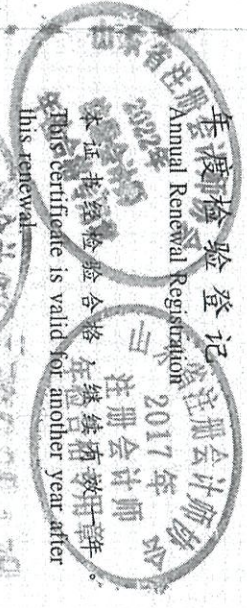 年度检验登记
Annual Renewal Registration
本证书经检验合格，继续有效一年。
This certificate is valid for another year after
this renewal.
省注册会计师
2022年
省注册会计师
2017年
注册会计师
年检合格专用章